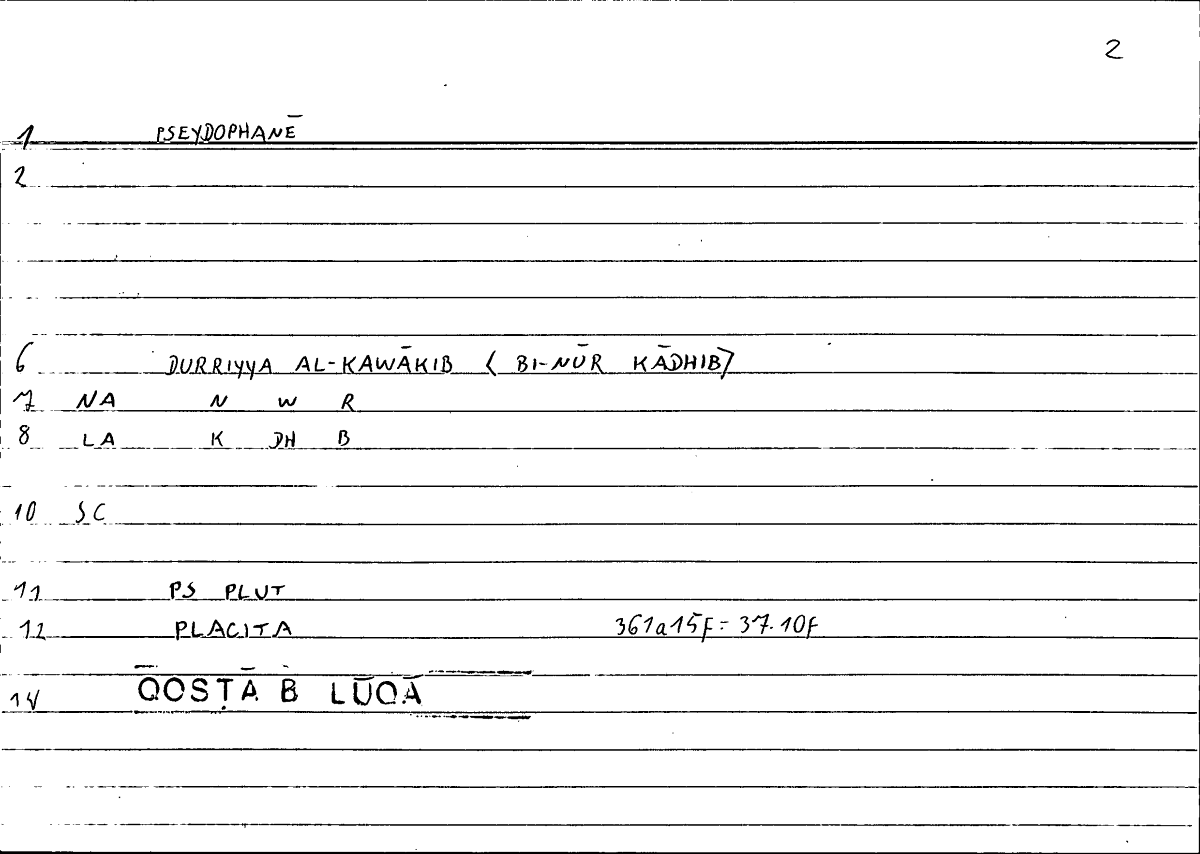 2
1 PSEYDOPHANĒ
2
6 DURRIYYA AL-KAWĀKIB ⟨ BI-NŪR KĀDHIB⟩
7 NA N W R
8 LA K DH B
10 SC
11 PS PLUT
12 PLACITA 361a15f = 37.10f
14 QOSṬĀ B LŪQĀ